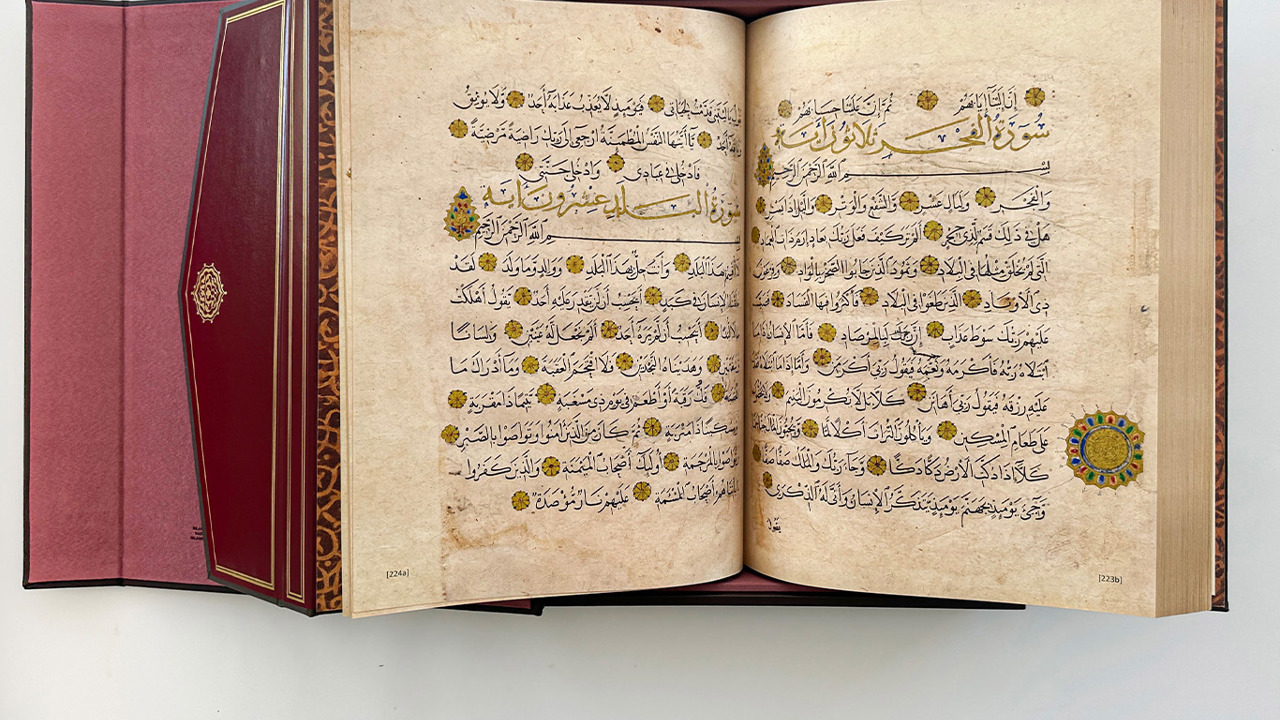 إِنَّ إِلَيْنَا إِيَابَهُمْ ثُمَّ إِنَّ عَلَيْنَا حِسَابَهُمْ
سُورَةُ الْفَجْرِ ثَلَاثُونَ آيَة
بِسْمِ اللَّهِ الرَّحْمَنِ الرَّحِيمِ
وَالْفَجْرِ وَلَيَالٍ عَشْرٍ وَالشَّفْعِ وَالْوَتْرِ وَاللَّيْلِ إِذَا يَسْرِ
هَلْ فِي ذَلِكَ قَسَمٌ لِذِي حِجْرٍ أَلَمْ تَرَ كَيْفَ فَعَلَ رَبُّكَ بِعَادٍ إِرَمَ ذَاتِ الْعِمَادِ
الَّتِي لَمْ يُخْلَقْ مِثْلُهَا فِي الْبِلَادِ وَثَمُودَ الَّذِينَ جَابُوا الصَّخْرَ بِالْوَادِ وَفِرْعَوْنَ
ذِي الْأَوْتَادِ الَّذِينَ طَغَوْا فِي الْبِلَادِ فَأَكْثَرُوا فِيهَا الْفَسَادَ فَصَبَّ
عَلَيْهِمْ رَبُّكَ سَوْطَ عَذَابٍ إِنَّ رَبَّكَ لَبِالْمِرْصَادِ فَأَمَّا الْإِنْسَانُ إِذَا مَا
ابْتَلَاهُ رَبُّهُ فَأَكْرَمَهُ وَنَعَّمَهُ فَيَقُولُ رَبِّي أَكْرَمَنِ وَأَمَّا إِذَا مَا ابْتَلَاهُ فَقَدَرَ
عَلَيْهِ رِزْقَهُ فَيَقُولُ رَبِّي أَهَانَنِ كَلَّا بَلْ لَا تُكْرِمُونَ الْيَتِيمَ
عَلَى طَعَامِ الْمِسْكِينِ وَتَأْكُلُونَ التُّرَاثَ أَكْلًا لَمًّا وَتُحِبُّونَ الْمَالَ حُبًّا
كَلَّا إِذَا دُكَّتِ الْأَرْضُ دَكًّا دَكًّا وَجَاءَ رَبُّكَ وَالْمَلَكُ صَفًّا صَفًّا
وَجِيءَ يَوْمَئِذٍ بِجَهَنَّمَ يَوْمَئِذٍ يَتَذَكَّرُ الْإِنْسَانُ وَأَنَّى لَهُ الذِّكْرَى
يَقُولُ
[223b]
قَدَّمْتُ لِحَيَاتِي فَيَوْمَئِذٍ لَا يُعَذِّبُ عَذَابَهُ أَحَدٌ وَلَا يُوثِقُ
وَثَاقَهُ أَحَدٌ يَا أَيَّتُهَا النَّفْسُ الْمُطْمَئِنَّةُ ارْجِعِي إِلَى رَبِّكِ رَاضِيَةً مَرْضِيَّةً
فَادْخُلِي فِي عِبَادِي وَادْخُلِي جَنَّتِي
سُورَةُ الْبَلَدِ عِشْرُونَ آيَة
بِسْمِ اللَّهِ الرَّحْمَنِ الرَّحِيمِ
لَا أُقْسِمُ بِهَذَا الْبَلَدِ وَأَنْتَ حِلٌّ بِهَذَا الْبَلَدِ وَوَالِدٍ وَمَا وَلَدَ لَقَدْ
خَلَقْنَا الْإِنْسَانَ فِي كَبَدٍ أَيَحْسَبُ أَنْ لَنْ يَقْدِرَ عَلَيْهِ أَحَدٌ يَقُولُ أَهْلَكْتُ
مَالًا لُبَدًا أَيَحْسَبُ أَنْ لَمْ يَرَهُ أَحَدٌ أَلَمْ نَجْعَلْ لَهُ عَيْنَيْنِ وَلِسَانًا
وَشَفَتَيْنِ وَهَدَيْنَاهُ النَّجْدَيْنِ فَلَا اقْتَحَمَ الْعَقَبَةَ وَمَا أَدْرَاكَ مَا
الْعَقَبَةُ فَكُّ رَقَبَةٍ أَوْ إِطْعَامٌ فِي يَوْمٍ ذِي مَسْغَبَةٍ يَتِيمًا ذَا مَقْرَبَةٍ
أَوْ مِسْكِينًا ذَا مَتْرَبَةٍ ثُمَّ كَانَ مِنَ الَّذِينَ آمَنُوا وَتَوَاصَوْا بِالصَّبْرِ
وَتَوَاصَوْا بِالْمَرْحَمَةِ أُولَئِكَ أَصْحَابُ الْمَيْمَنَةِ وَالَّذِينَ كَفَرُوا
بِآيَاتِنَا هُمْ أَصْحَابُ الْمَشْأَمَةِ عَلَيْهِمْ نَارٌ مُؤْصَدَةٌ
[224a]